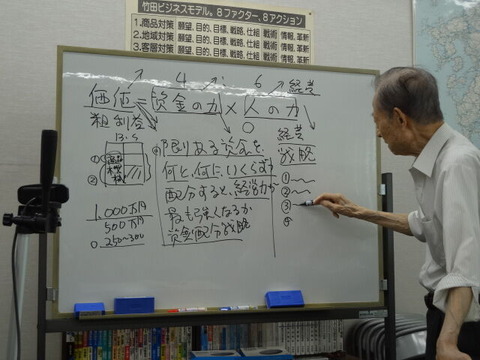 竹田ビジネスモデル。8ファクター、8アクション
1.商品対策 願望、目的、目標、戦略、仕組 戦術 情報、革新
2.地域対策 願望、目的、目標、戦略、仕組 戦術 情報、革新
3.客層対策 願望、目的、目標、戦略、仕組 戦術 情報、革新
4 6 経営
価値=資金の力×人の力
粗利益
13.5
経営
戦略
限りある資金を
何と、何に、いくらずつ
配分すると、経営力が
最も強くなるか
資金配分戦略
① ①
② ②
③
1,000万円
500万円
0.250~300